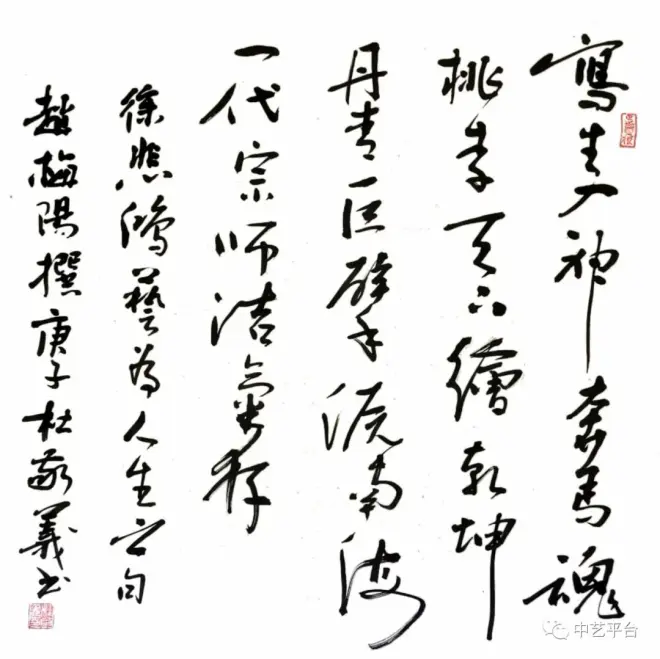 寫生入神奔馬魂
桃李天下繪乾坤
丹青巨擘流南海
一代宗師浩氣存
徐悲鴻藝為人生句
趙梅陽撰庚子杜敬義書
中艺平台